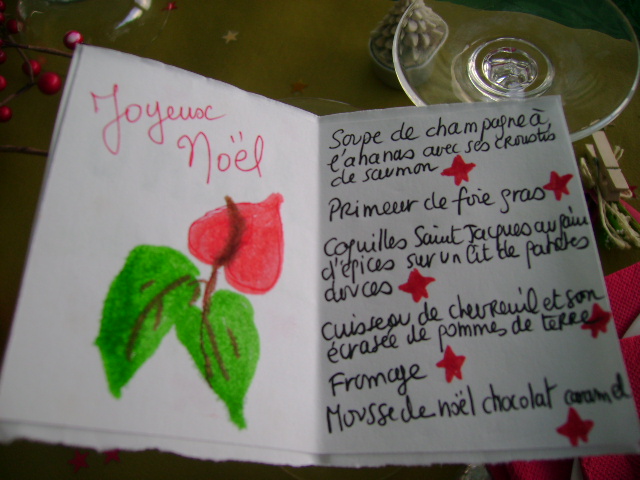 Joyeux
Noël
Soupe de champagne à
l'ananas avec ses croustis
de saumon
Primeur de foie gras
Coquilles Saint Jacques au pain
d'épices sur un lit de patates
douces
Cuisseau de chevreuil et son
écrasée de pommes de terre
Fromage
Mousse de noël chocolat caramel